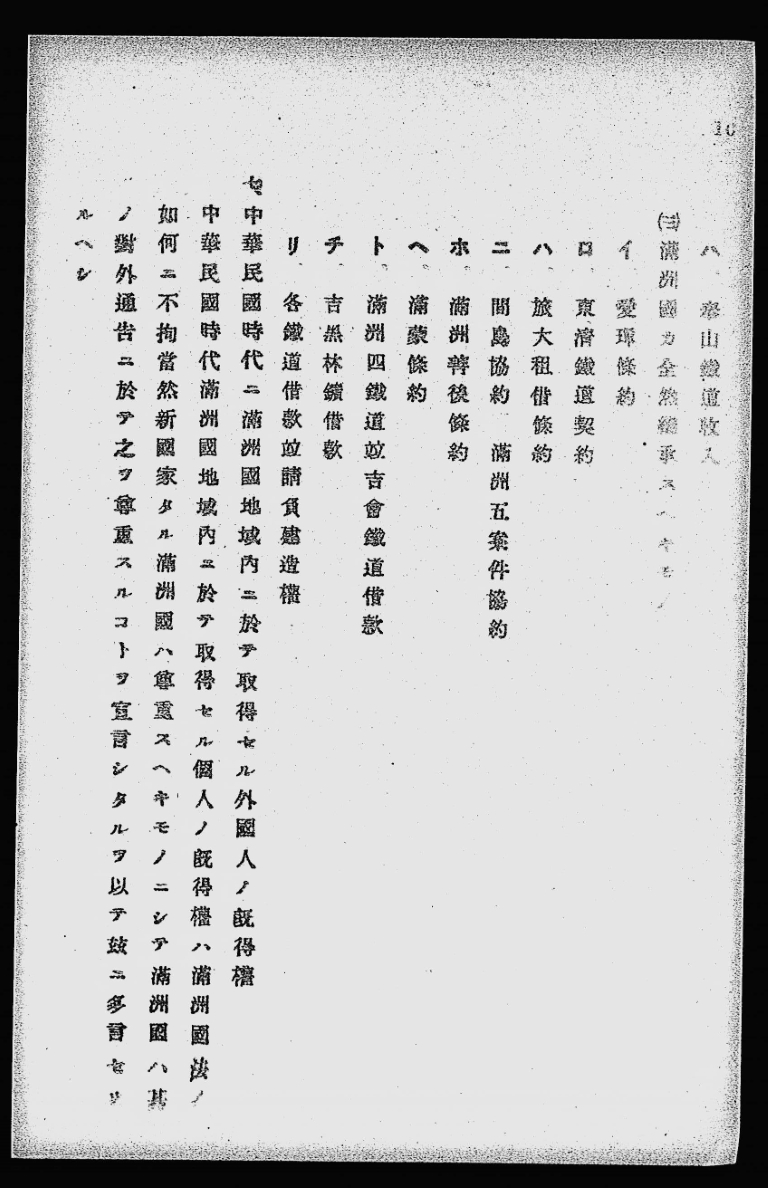 10
ハ、奉山鐵道收入
㈢滿洲國カ全然繼承スヘキモノ
イ、愛琿條約
ロ、東濟鐵道契約
ハ、旅大租借條約
ニ、間島協約 滿洲五案件協約
ホ、滿洲善後條約
ヘ、滿蒙條約
ト、滿洲四鐵道竝吉會鐵道借款
チ、吉黑林鑛借款
リ、各鐵道借款竝請負建造權
七、中華民國時代ニ滿洲國地域內ニ於テ取得セル外國人ノ既得權
中華民國時代滿洲國地域內ニ於テ取得セル個人ノ既得權ハ滿洲國法ノ
如何ニ不拘當然新國家タル滿洲國ハ尊重スヘキモノニシテ滿洲國ハ其
ノ對外通告ニ於テ之ヲ尊重スルコトヲ宣言シタルヲ以テ玆ニ多言セサ
ルヘシ